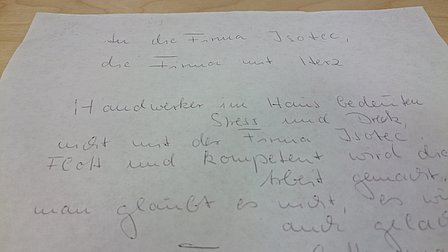 An die Firma Isotec,
die Firma mit Herz
Handwerker im Haus bedeuten
Stress und Dreck
nicht mit der Firma Isotec.
Flott und kompetent wird die
Arbeit gemacht.
man glaubt es nicht, es wi
auch gelac